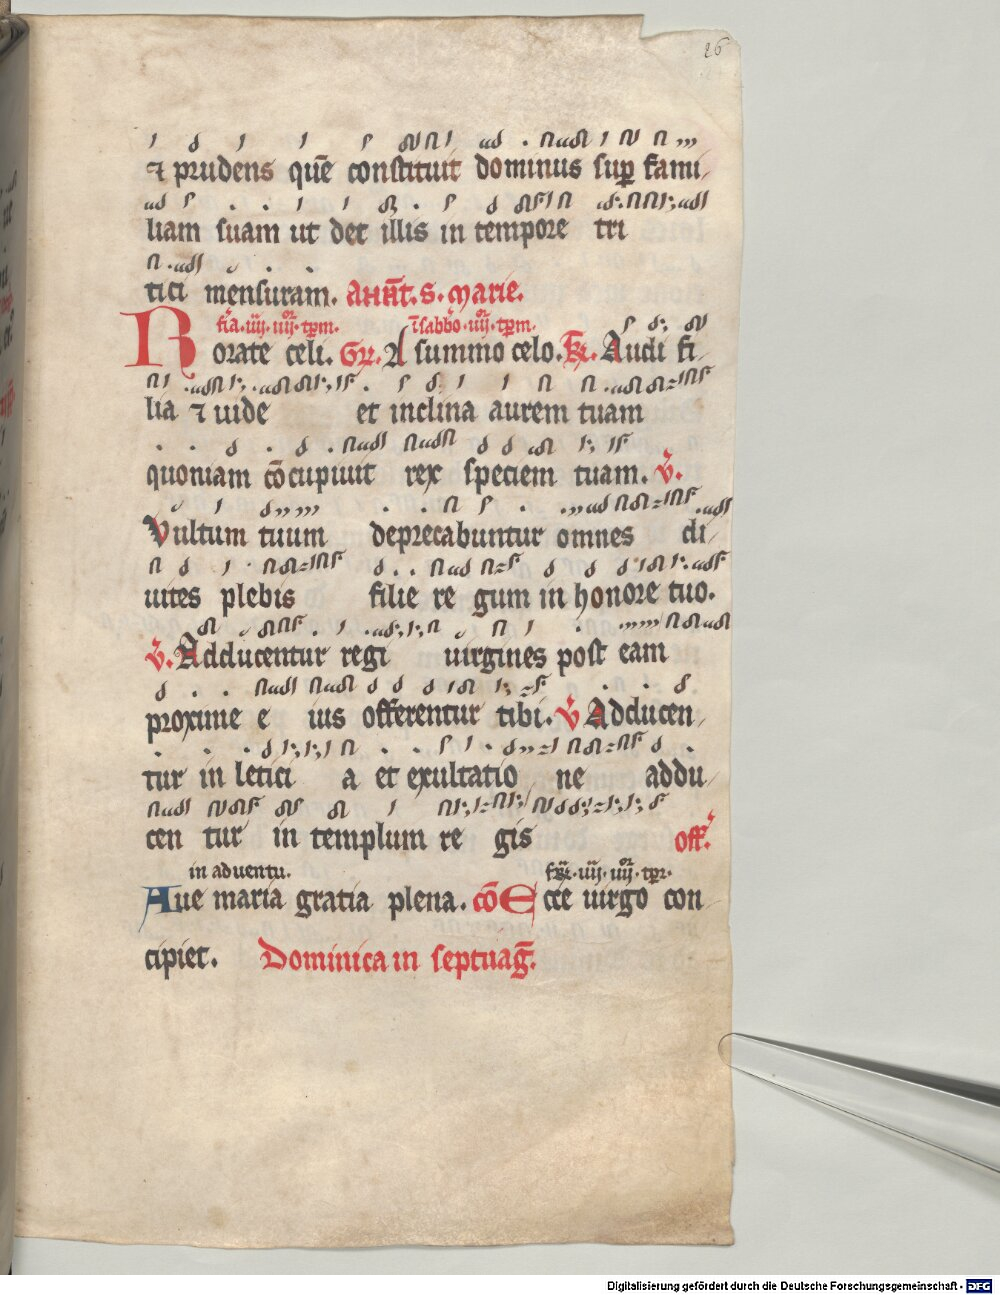 26
⁊ prudens quē constituit dominus suꝑ fami
liam suam ut det illis in tempore tri
tici mensuram. Annt̄. S. Marie.
fīa. iiij. iiijor. tꝑm. ī sabb̄o. iiijor. tꝑm.
Rorate celi. Gr̄. A summo celo. Tr̄. Audi fi
lia ⁊ uide et inclina aurem tuam
quoniam cōcupiuit rex speciem tuam. V̄.
Vultum tuum deprecabuntur omnes di
uites plebis filie re gum in honore tuo.
V̄. Adducentur regi uirgines post eam
proxime e ius offerentur tibi. V̄ Adducen
tur in letici a et exultatio ne addu
cen tur in templum re gis off̄.
in aduentu. iiij. iiijor. tꝑr.
Aue maria gratia plena. cō Ecce uirgo con
cipiet. Dominica in septuaḡ.
Digitalisierung gefördert durch die Deutsche Forschungsgemeinschaft - DFG